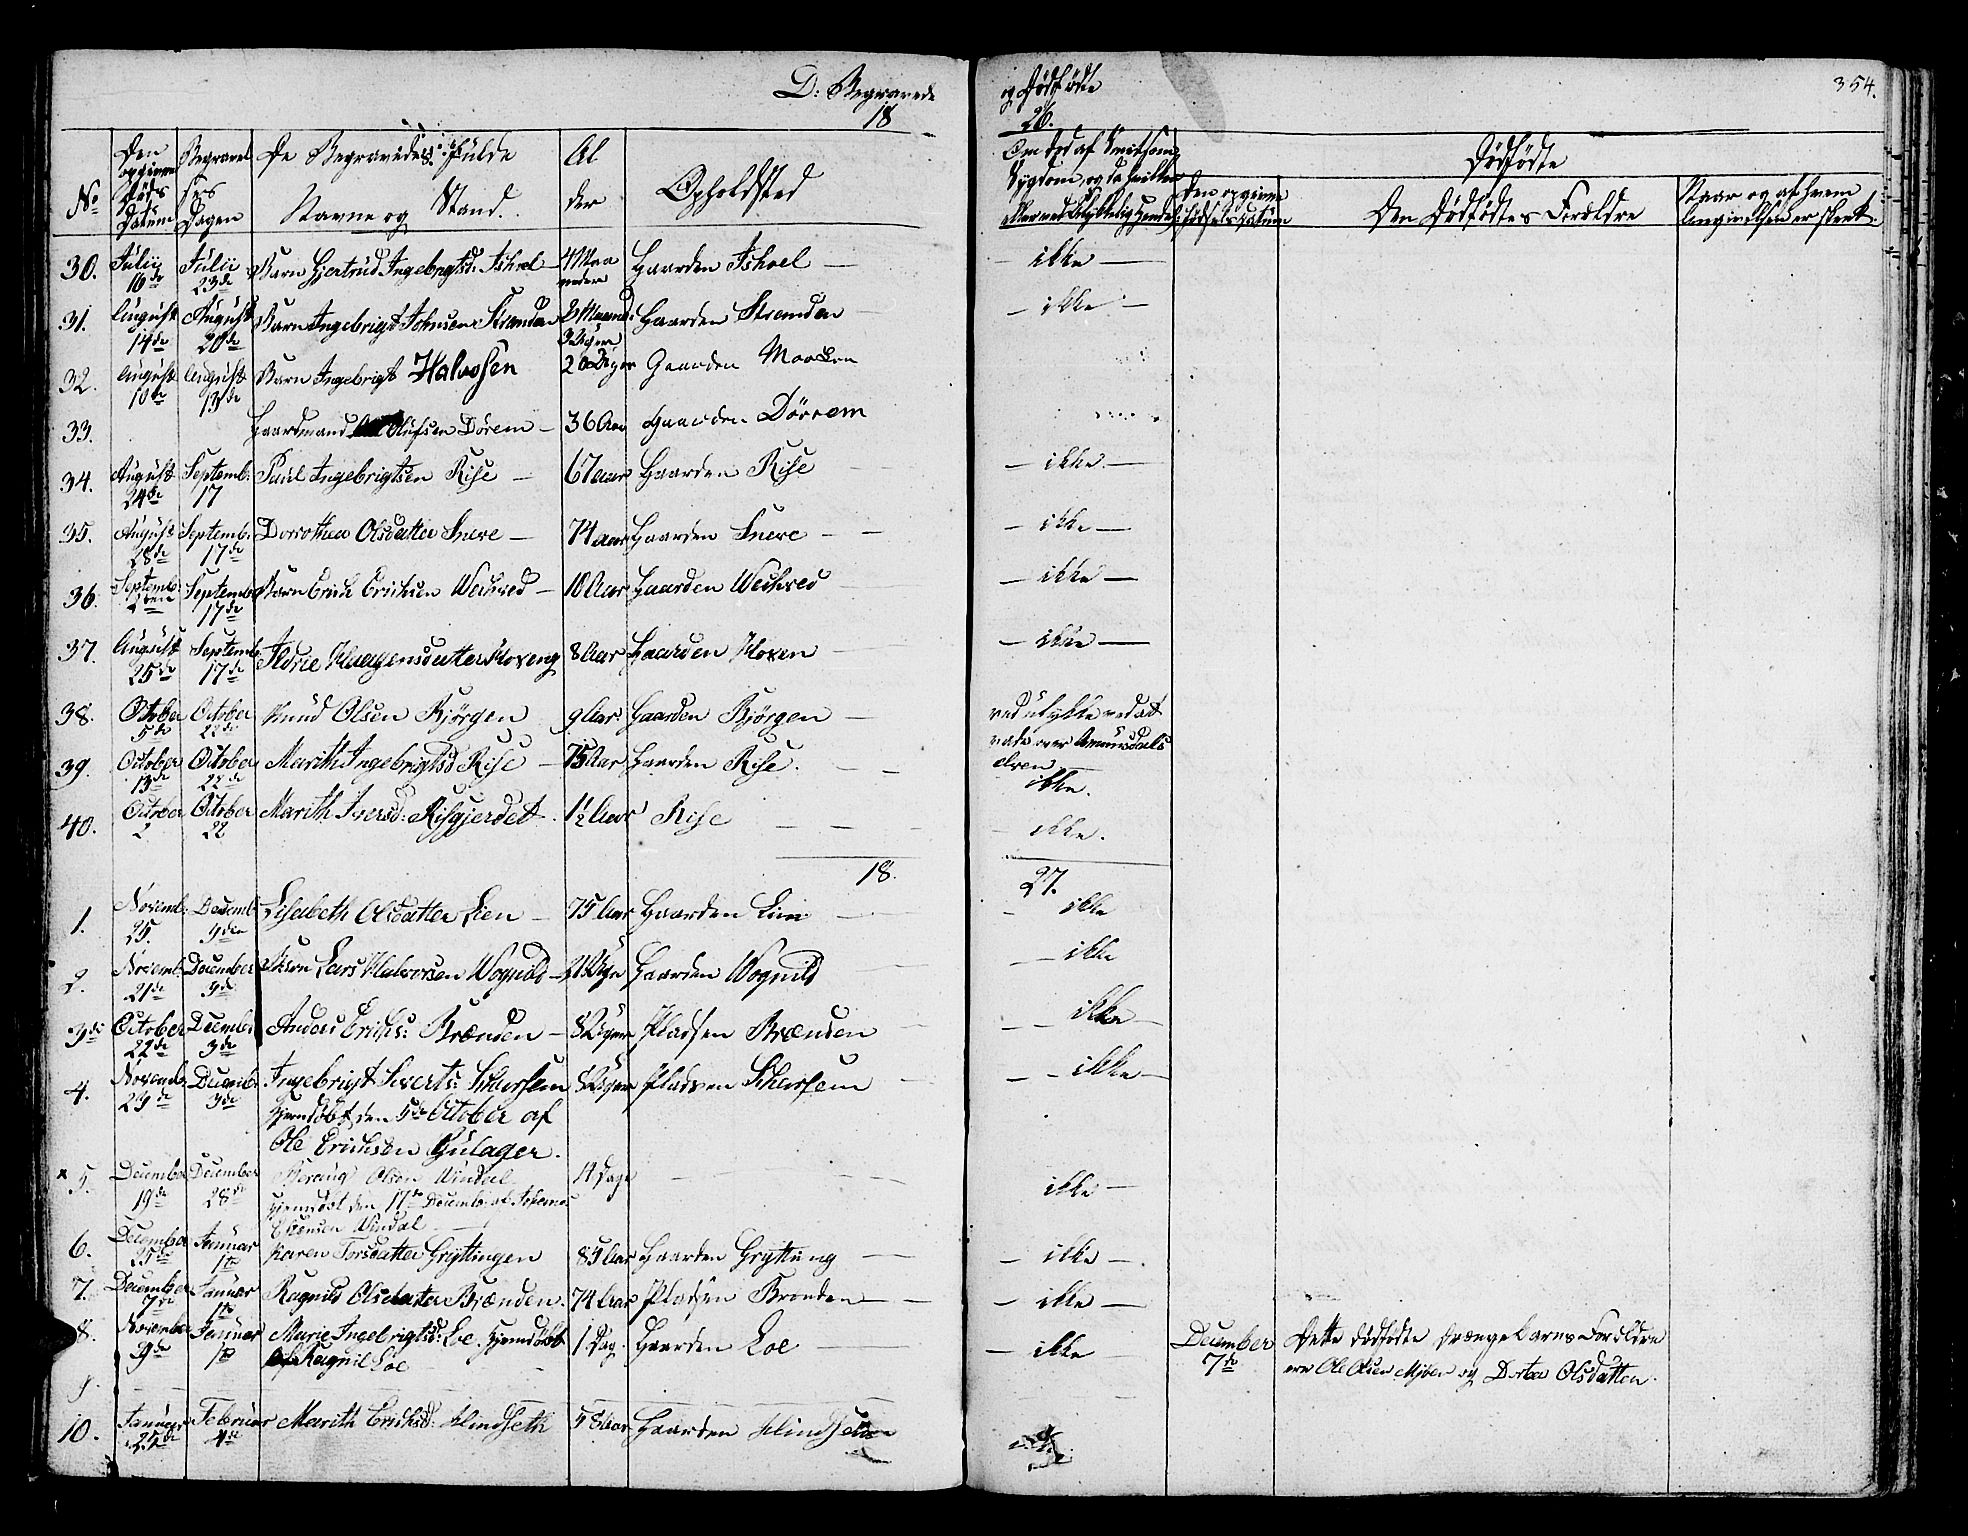 D: Begravede
18
og Dødfødte
26.
354.
No
Den opgivne Døds Datum
Begravelses Dagen
De Begravedes fulde Navne og Stand.
Alder
Opholdsted
Om død af Smitsom Sygdom, og da hvilken
Den opgivne Fødsels Datum
Dødfødte
Den Dødfødtes Forældre
Naar og af hvem Angivelsen er skeet.
30. Julii 16de Julii 23de Barn Gjertrud Ingebrigtsd: Ishoel 4 Maaneder Gaarden Ishoel — ikke —
31. August 14de August 20de Barn Ingebrigt Johnsen Strømden 2 Maand. 3 Uger Gaarden Strømden — ikke —
32. August 10de August 13de Barn Ingebrigt Halvosen 20 Uger Gaarden Mocken
33. Gaardmand Ole Olufsen Dørem — 36 Aar Gaarden Dørrem
34. August 24de Septemb. 17 Paul Ingebrigtsen Rise — 67 Aar Gaarden Rise — ikke —
35. August 28de Septemb. 17de Dorothea Olsdatter Snewe — 74 Aar Gaarden Snewe — ikke —
36. Septemb. 2den Septemb. 17de Barn Erich Erichsen Weihved — 10 Aar Gaarden Weihved — ikke —
37. August 25de Septemb. 17de Ildrie Haagensdatter Hoveng 8 Aar Gaarden Hoven — ikke —
38. October 5te October 22de Knud Olsen Bjørgen 9 Aar Gaarden Bjørgen — ved ulykke ved att vade over Amunsdals elven —
39. October 13de October 22de Marith Ingebrigtsd Rise — 75 Aar Gaarden Rise. — ikke.
40. October 2 October 22 Marith Iversd: Risgjerdet. 1½ Aar Rise — ikke.
18 27.
1. Novemb. 25. Decemb. 9den Lisebeth Olsdatter Lien — 75 Aar Gaarden Lien — ikke
2. Novemb. 21de December 9de Lars Halvorsen Wognild — Gaarden Wognild — ikke
3de October 22de December 3de Anders Erichs: Brænden — 8 Uger Pladsen Brænden — ikke —
4. Novemb. 29de Decemb. 3de Ingebrigt Siverts: Skarsem 8 Uger Pladsen Skarsem — ikke —
Hjemdøbt den 5te October af
Ole Erichsen Gulager.
5. December 19de December 28de Olsen Windal 14 Dage — ikke —
Hjemdøbt den 17de Decemb. af
Windal
6. December 25de Januar 1te Karen Torsdatter Gryttingen 85 Aar Gaarden Grytting — ikke —
7. December 7de Januar 1te Ragnild Olsdatter Brænden. 74 Aar Pladsen Brænden — ikke —
8. November 9de Januar 1te Marie Ingebrigtsd: Loe. Hjemdøbt 1 Dag. Gaarden Loe — ikke — December 7de Dette dødfødte Drængebarns Forældre
af Ragnil Loe — ere Ole Olsen Mjøen og Dorte Olsdatter.
9
10. Januar 25de Februar 4de Marith Erichsd: Hindseth 58 Aar Gaarden